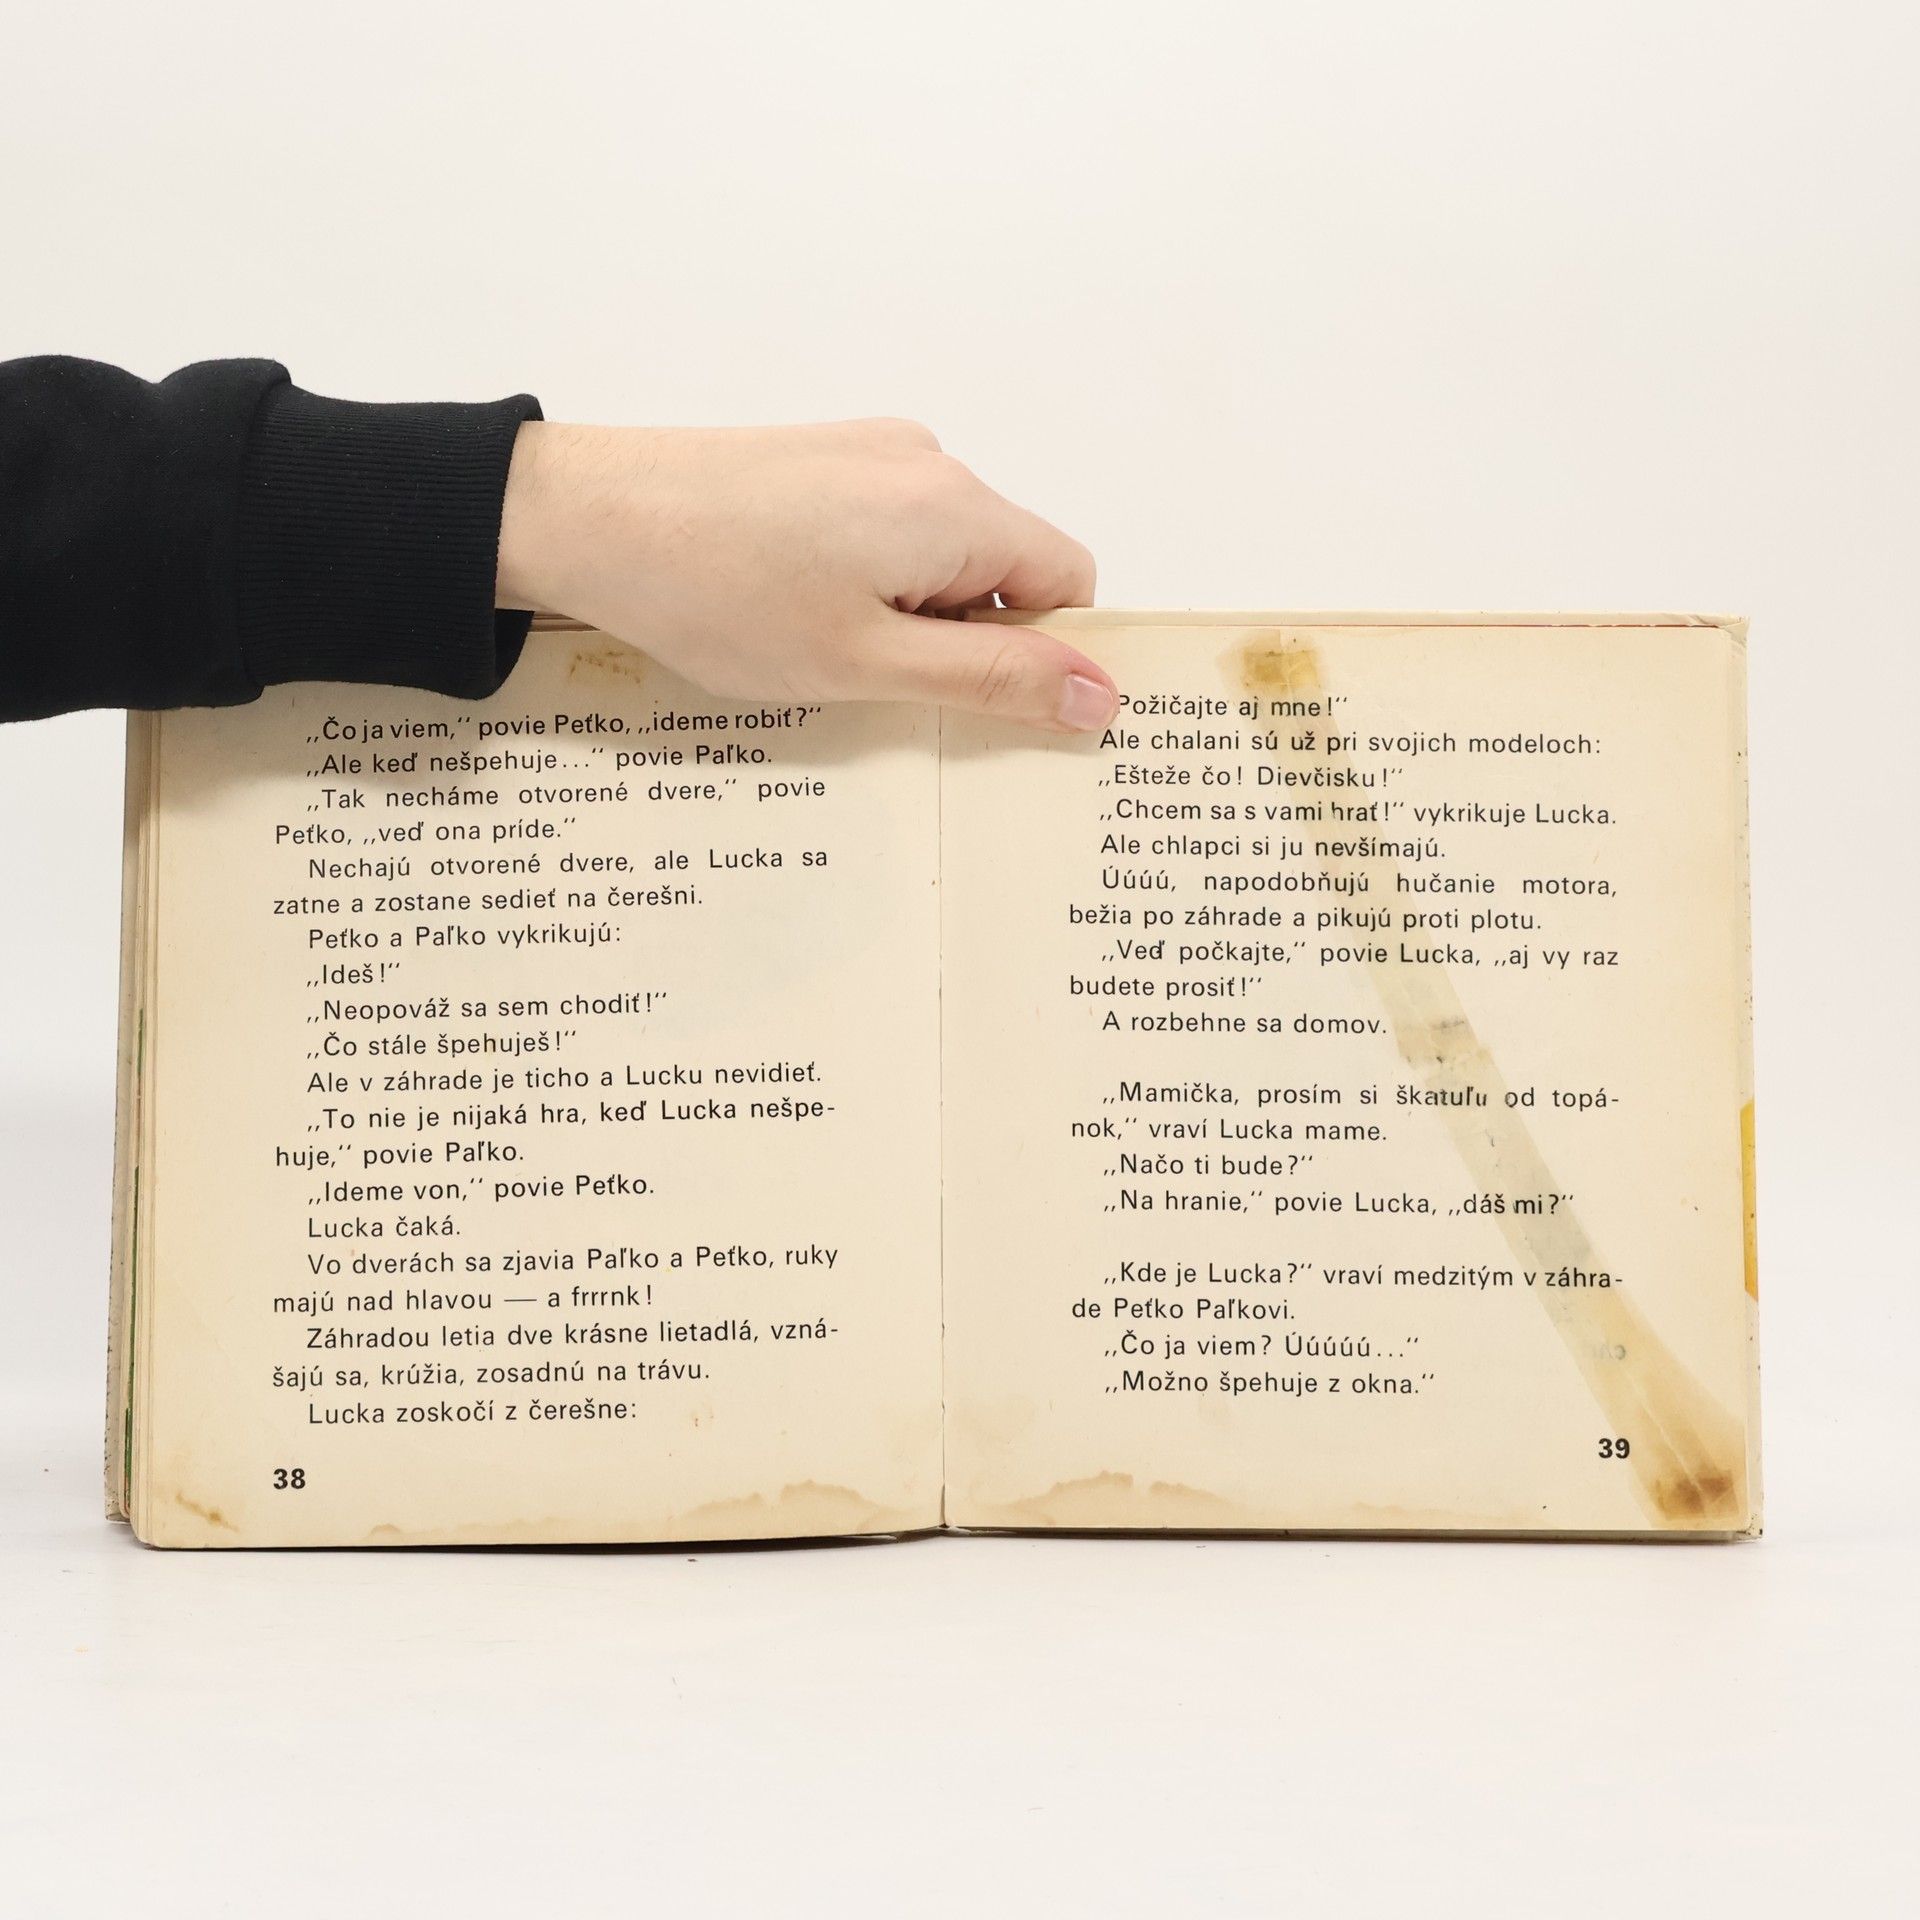 ,,Čo ja viem,‘‘ povie Peťko, ,,ideme robiť?‘‘
,,Ale keď nešpehuje...‘‘ povie Paľko.
,,Tak necháme otvorené dvere,‘‘ povie
Peťko, ,,veď ona príde.‘‘
Nechajú otvorené dvere, ale Lucka sa
zatne a zostane sedieť na čerešni.
Peťko a Paľko vykrikujú:
,,Ideš!‘‘
,,Neopováž sa sem chodiť!‘‘
,,Čo stále špehuješ!‘‘
Ale v záhrade je ticho a Lucku nevidieť.
,,To nie je nijaká hra, keď Lucka nešpe-
huje,‘‘ povie Paľko.
,,Ideme von,‘‘ povie Peťko.
Lucka čaká.
Vo dverách sa zjavia Paľko a Peťko, ruky
majú nad hlavou — a frrrnk!
Záhradou letia dve krásne lietadlá, vzná-
šajú sa, krúžia, zosadnú na trávu.
Lucka zoskočí z čerešne:
38
Požičajte aj mne!‘‘
Ale chalani sú už pri svojich modeloch:
,,Ešteže čo! Dievčisku!‘‘
,,Chcem sa s vami hrať!‘‘ vykrikuje Lucka.
Ale chlapci si ju nevšímajú.
Úúúú, napodobňujú hučanie motora,
bežia po záhrade a pikujú proti plotu.
,,Veď počkajte,‘‘ povie Lucka, ,,aj vy raz
budete prosiť!‘‘
A rozbehne sa domov.
,,Mamička, prosím si škatuľu od topá-
nok,‘‘ vraví Lucka mame.
,,Načo ti bude?‘‘
,,Na hranie,‘‘ povie Lucka, ,,dáš mi?‘‘
,,Kde je Lucka?‘‘ vraví medzitým v záhra-
de Peťko Paľkovi.
,,Čo ja viem? Úúúúú...‘‘
,,Možno špehuje z okna.‘‘
39